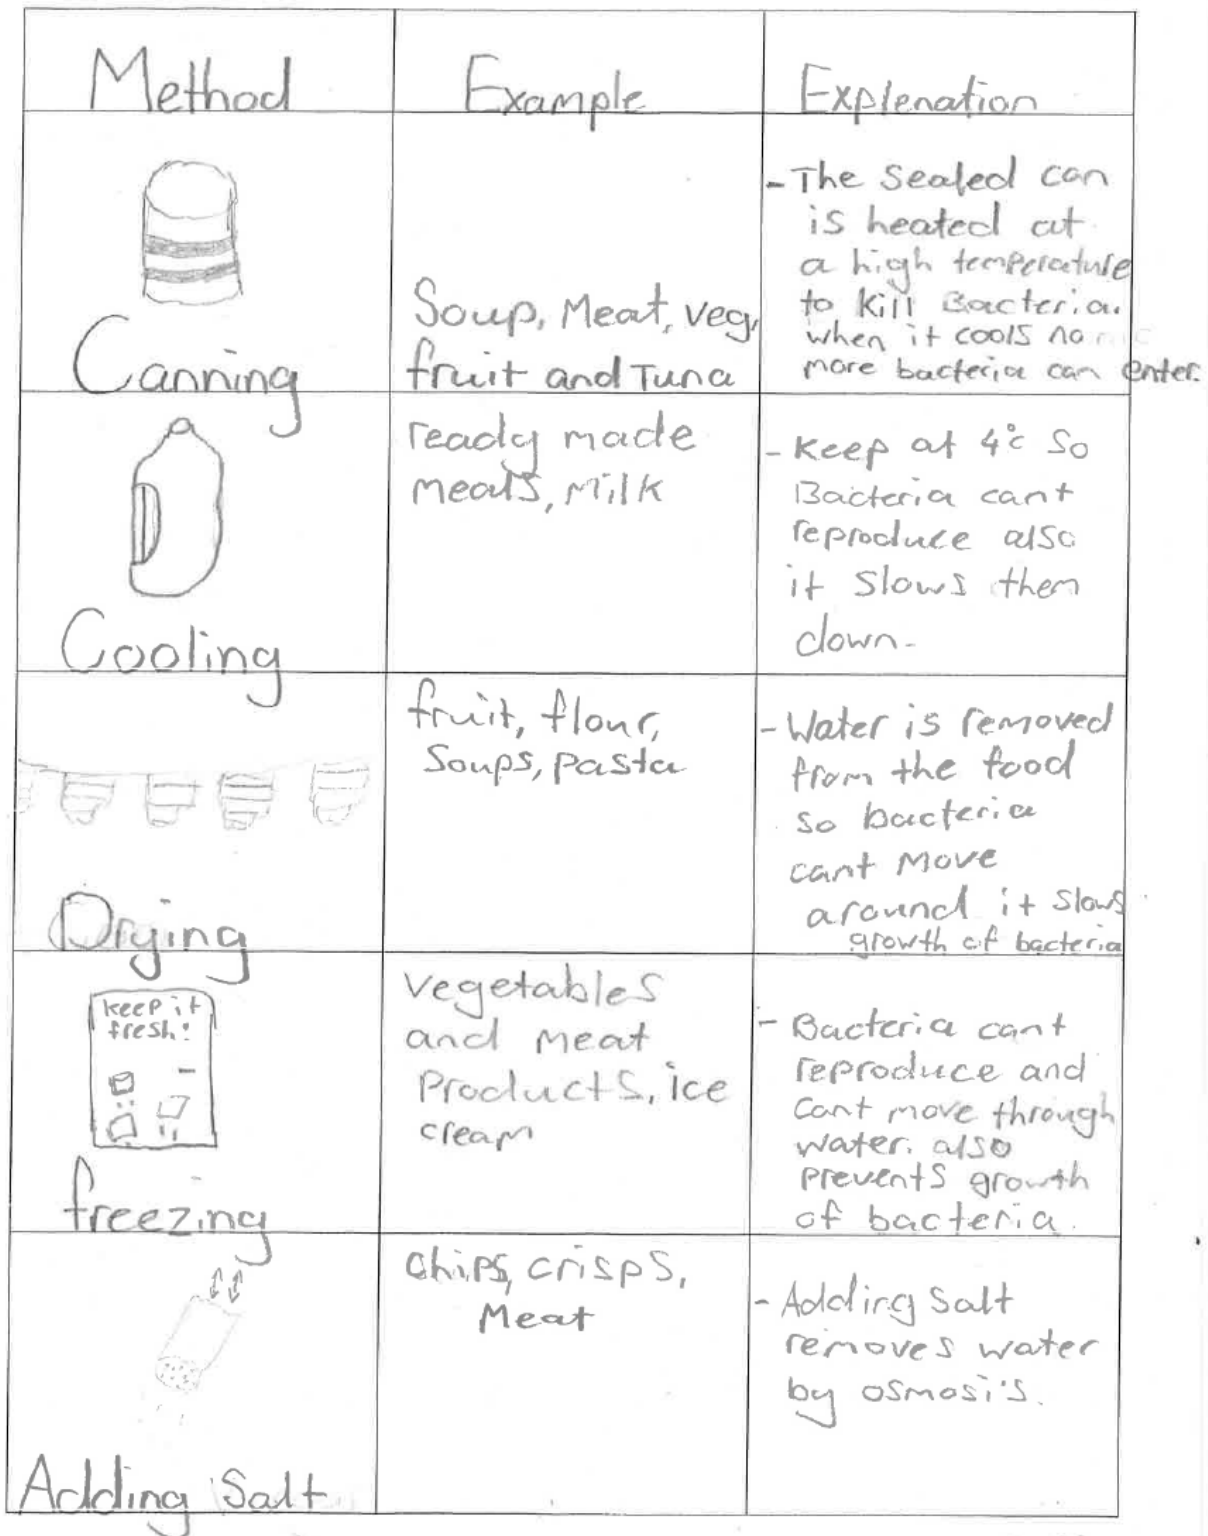 Method Example Explenation
Canning
Soup, Meat, veg,
fruit and Tuna
- The Sealed can
is heated at
a high temperature
to kill Bacteria.
when it cools no
more bacteria can enter.
Cooling
ready made
meals, Milk
- Keep at 4°c So
Bacteria cant
reproduce also
it Slows them
down.
Drying
fruit, flour,
Soups, pasta
- Water is removed
from the food
so bacteria
cant Move
around it slows
growth of bacteria
keep it
fresh!
freezing
vegetables
and meat
Products, ice
cream
- Bacteria cant
reproduce and
cant move through
water. also
prevents growth
of bacteria.
Adding Salt
chips, crisps,
Meat
- Adding Salt
removes water
by osmosi's.